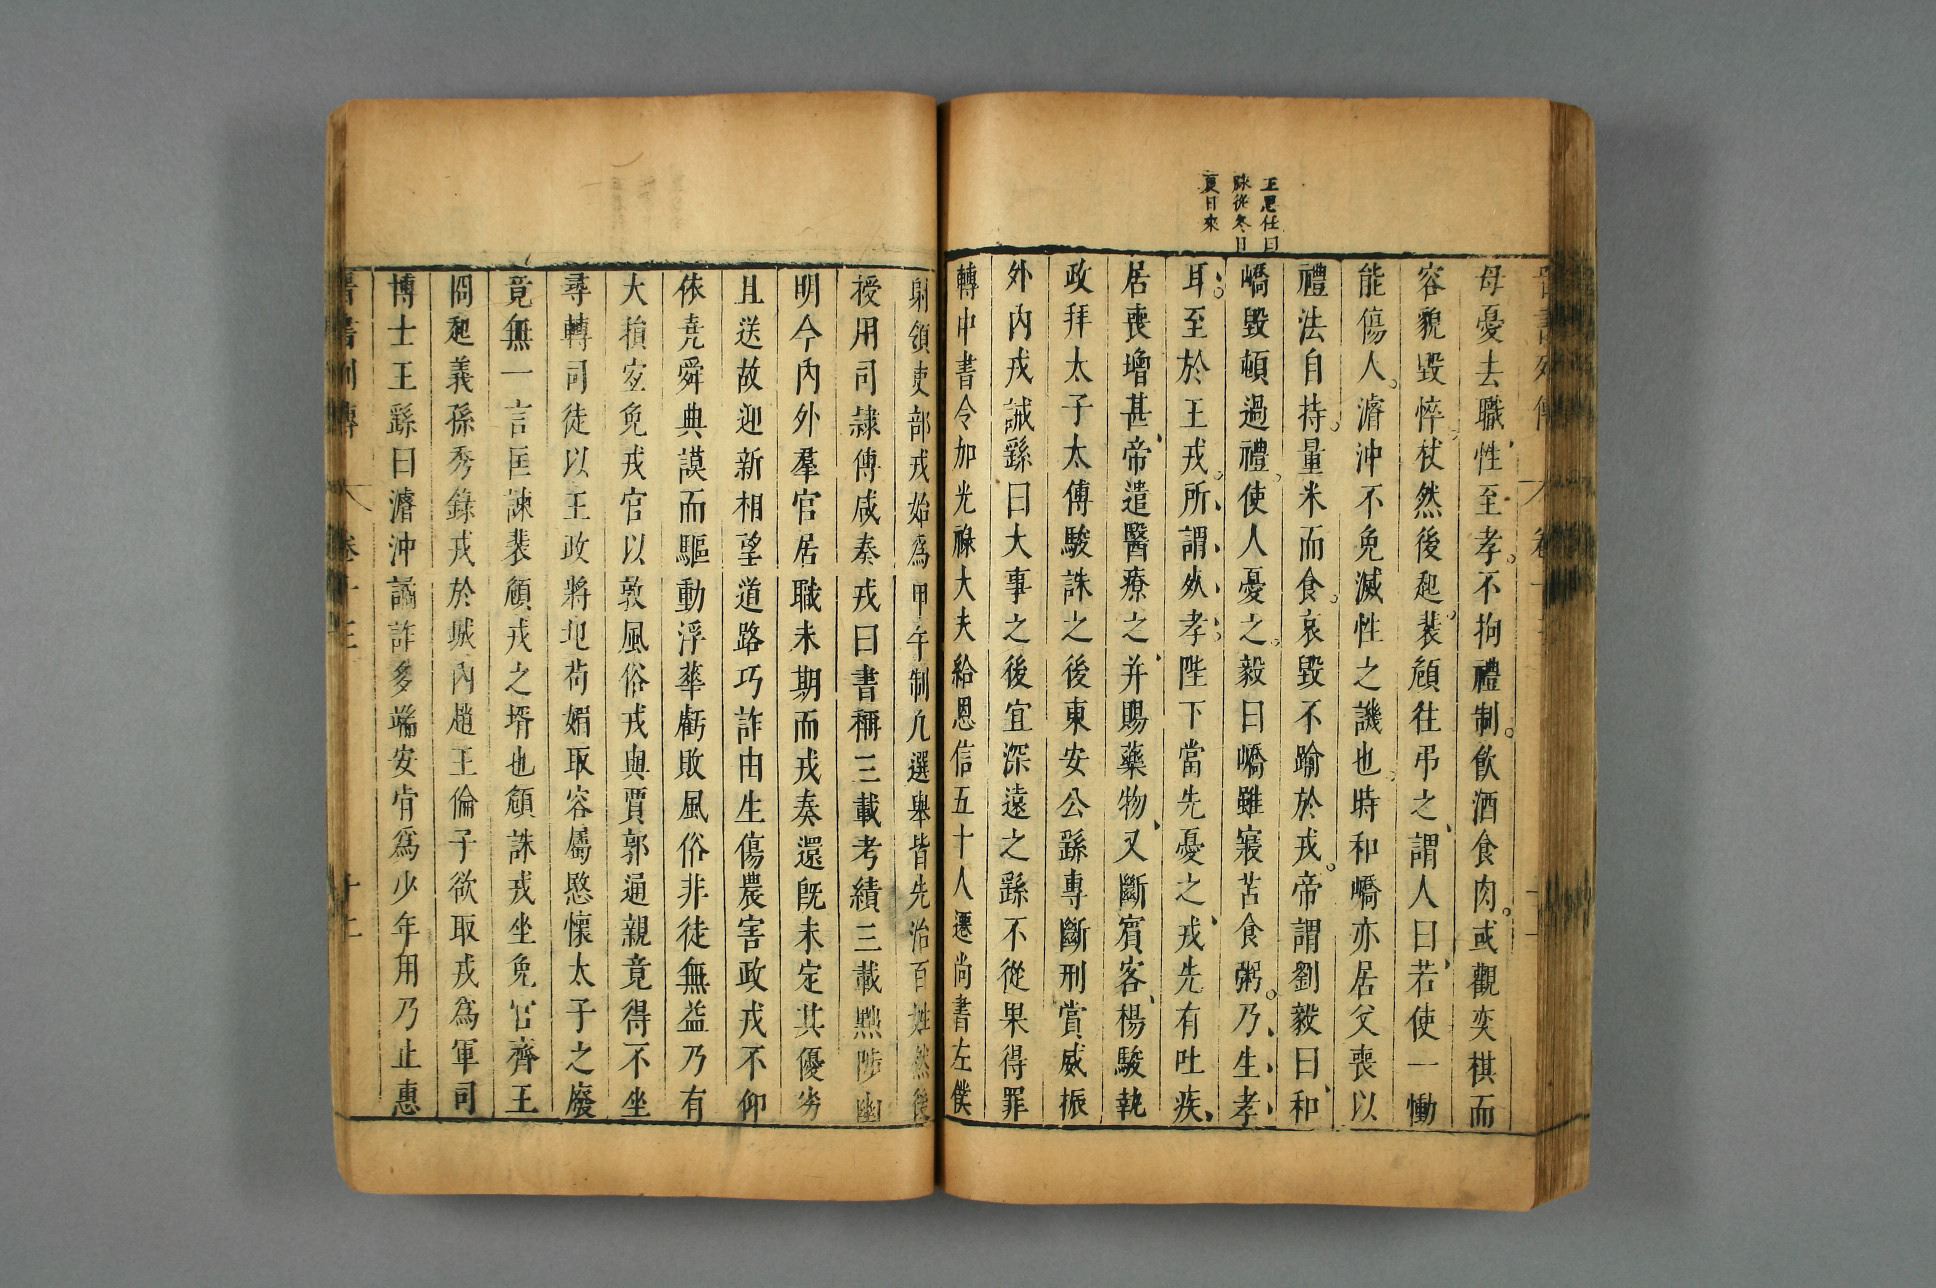 王思任曰
味從冬日
夏日來
母憂去職性至孝不拘禮制飲酒食肉或觀奕棋而
容貌毀悴杖然後起裴頠往弔之謂人曰若使一慟
能傷人濬沖不免滅性之譏也時和嶠亦居父喪以
禮法自持量米而食哀毀不踰於戎帝謂劉毅曰和
嶠毀頓過禮使人憂之毅曰嶠雖寢苫食粥乃生孝
耳至於王戎所謂死孝陛下當先憂之戎先有吐疾
居喪增甚帝遣醫療之并賜藥物又斷賓客楊駿執
政拜太子太傅駿誅之後東安公繇專斷刑賞威振
外內戎誡繇曰大事之後宜深遠之繇不從果得罪
轉中書令加光祿大夫給恩信五十人遷尚書左僕
射領吏部戎始爲甲午制凡選舉皆先治百姓然後
授用司隸傅咸奏戎曰書稱三載考績三載黜陟幽
明今內外羣官居職未期而戎奏還旣未定其優劣
且送故迎新相望道路巧詐由生傷農害政戎不仰
依堯舜典謨而驅動浮華虧敗風俗非徒無益乃有
大損宜免戎官以敦風俗戎與賈郭通親竟得不坐
尋轉司徒以王政將圮苟媚取容屬愍懷太子之廢
竟無一言匡諫裴頠戎之壻也頠誅戎坐免官齊王
冏起義孫秀錄戎於城內趙王倫子欲取戎爲軍司
博士王繇曰濬沖譎詐多端安肯爲少年用乃止惠
晉書列傳 卷十三 十二